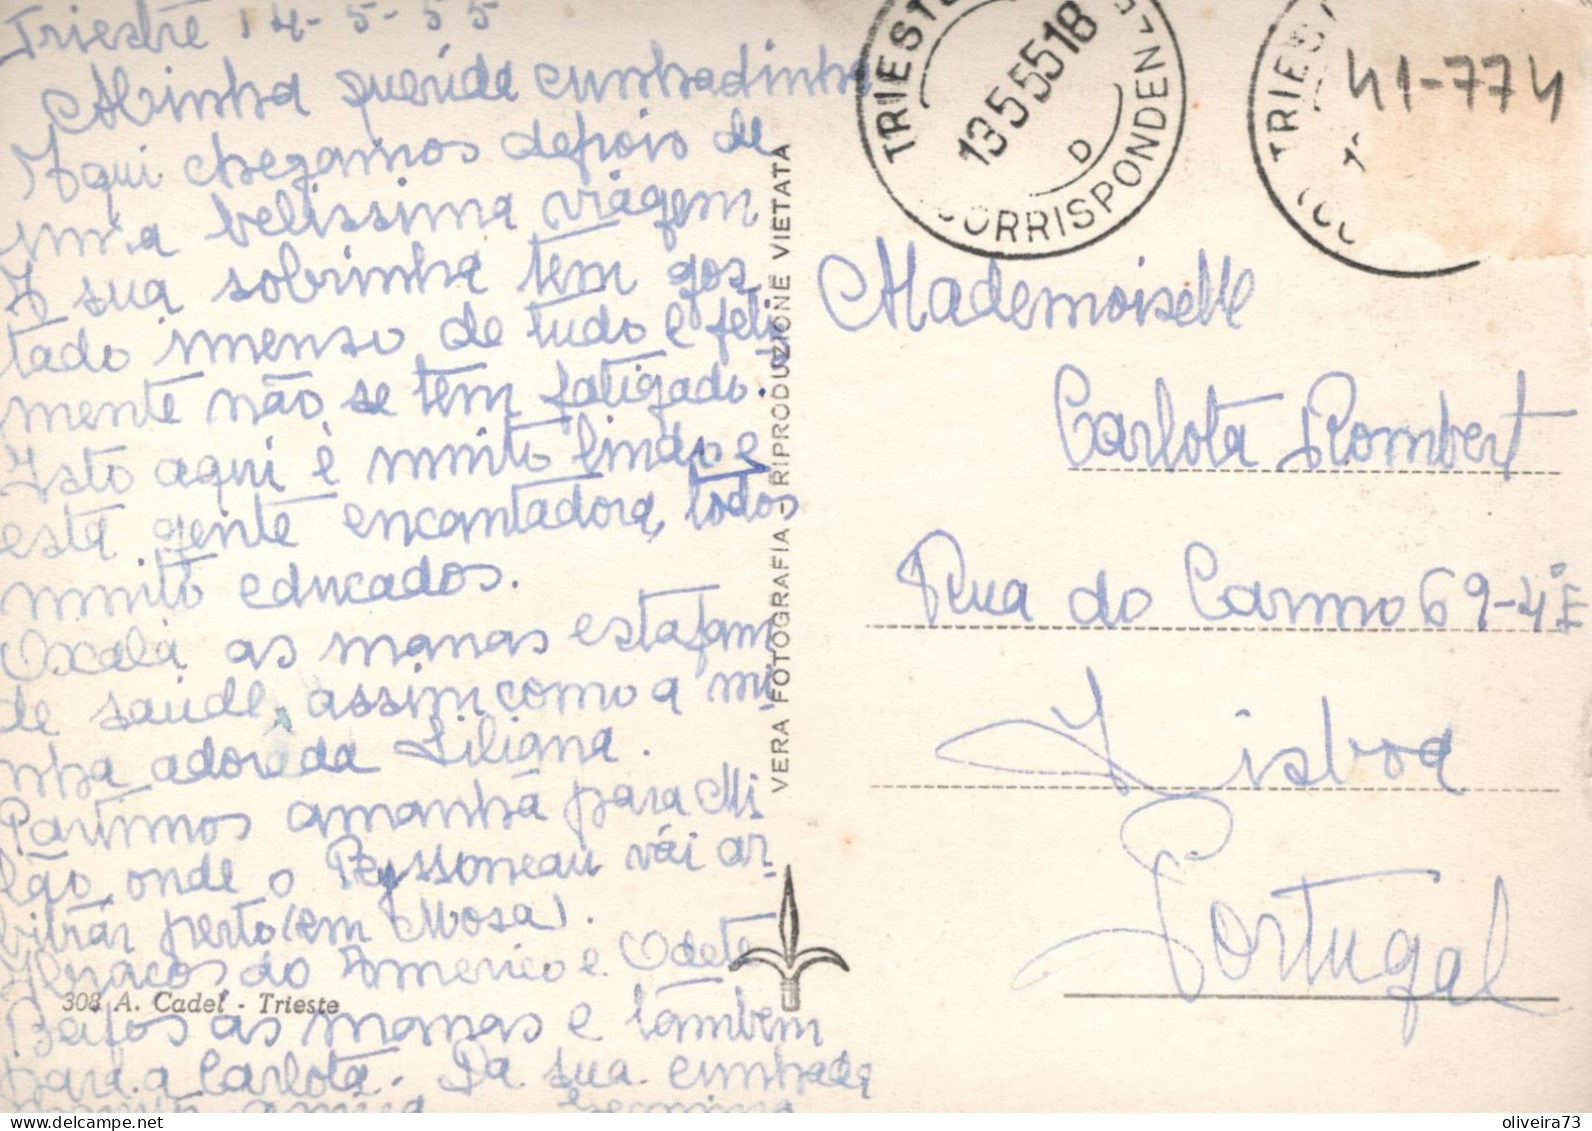 Trieste 14-5-55
Minha querida cunhadinha
Aqui chegamos depois de
uma belissima viagem
A sua sobrinha tem gos
tado imenso de tudo e feliz
mente não se tem fatigado.
Isto aqui é muito lindo e
esta gente encantadora, todos
muito educados.
Oxalá as manas estejam
de saúde, assim como a mi
nha adorada Liliana.
Partimos amanhã para Mi
lão onde o vái ar-
bitrár perto (em Mosa).
Abraços do Americo e Odete
Beijos as manas e tambem
para a Carlota. Da sua cunhada
amiga
308 A. Cadel - Trieste
VERA FOTOGRAFIA - RIPRODUZIONE VIETATA
TRIESTE
13 5 55 18
D
CORRISPONDEN
TRIES
41-774
Mademoiselle
Carlota Rombert
Rua do Carmo 69-4º E
Lisboa
Portugal
oliveira73